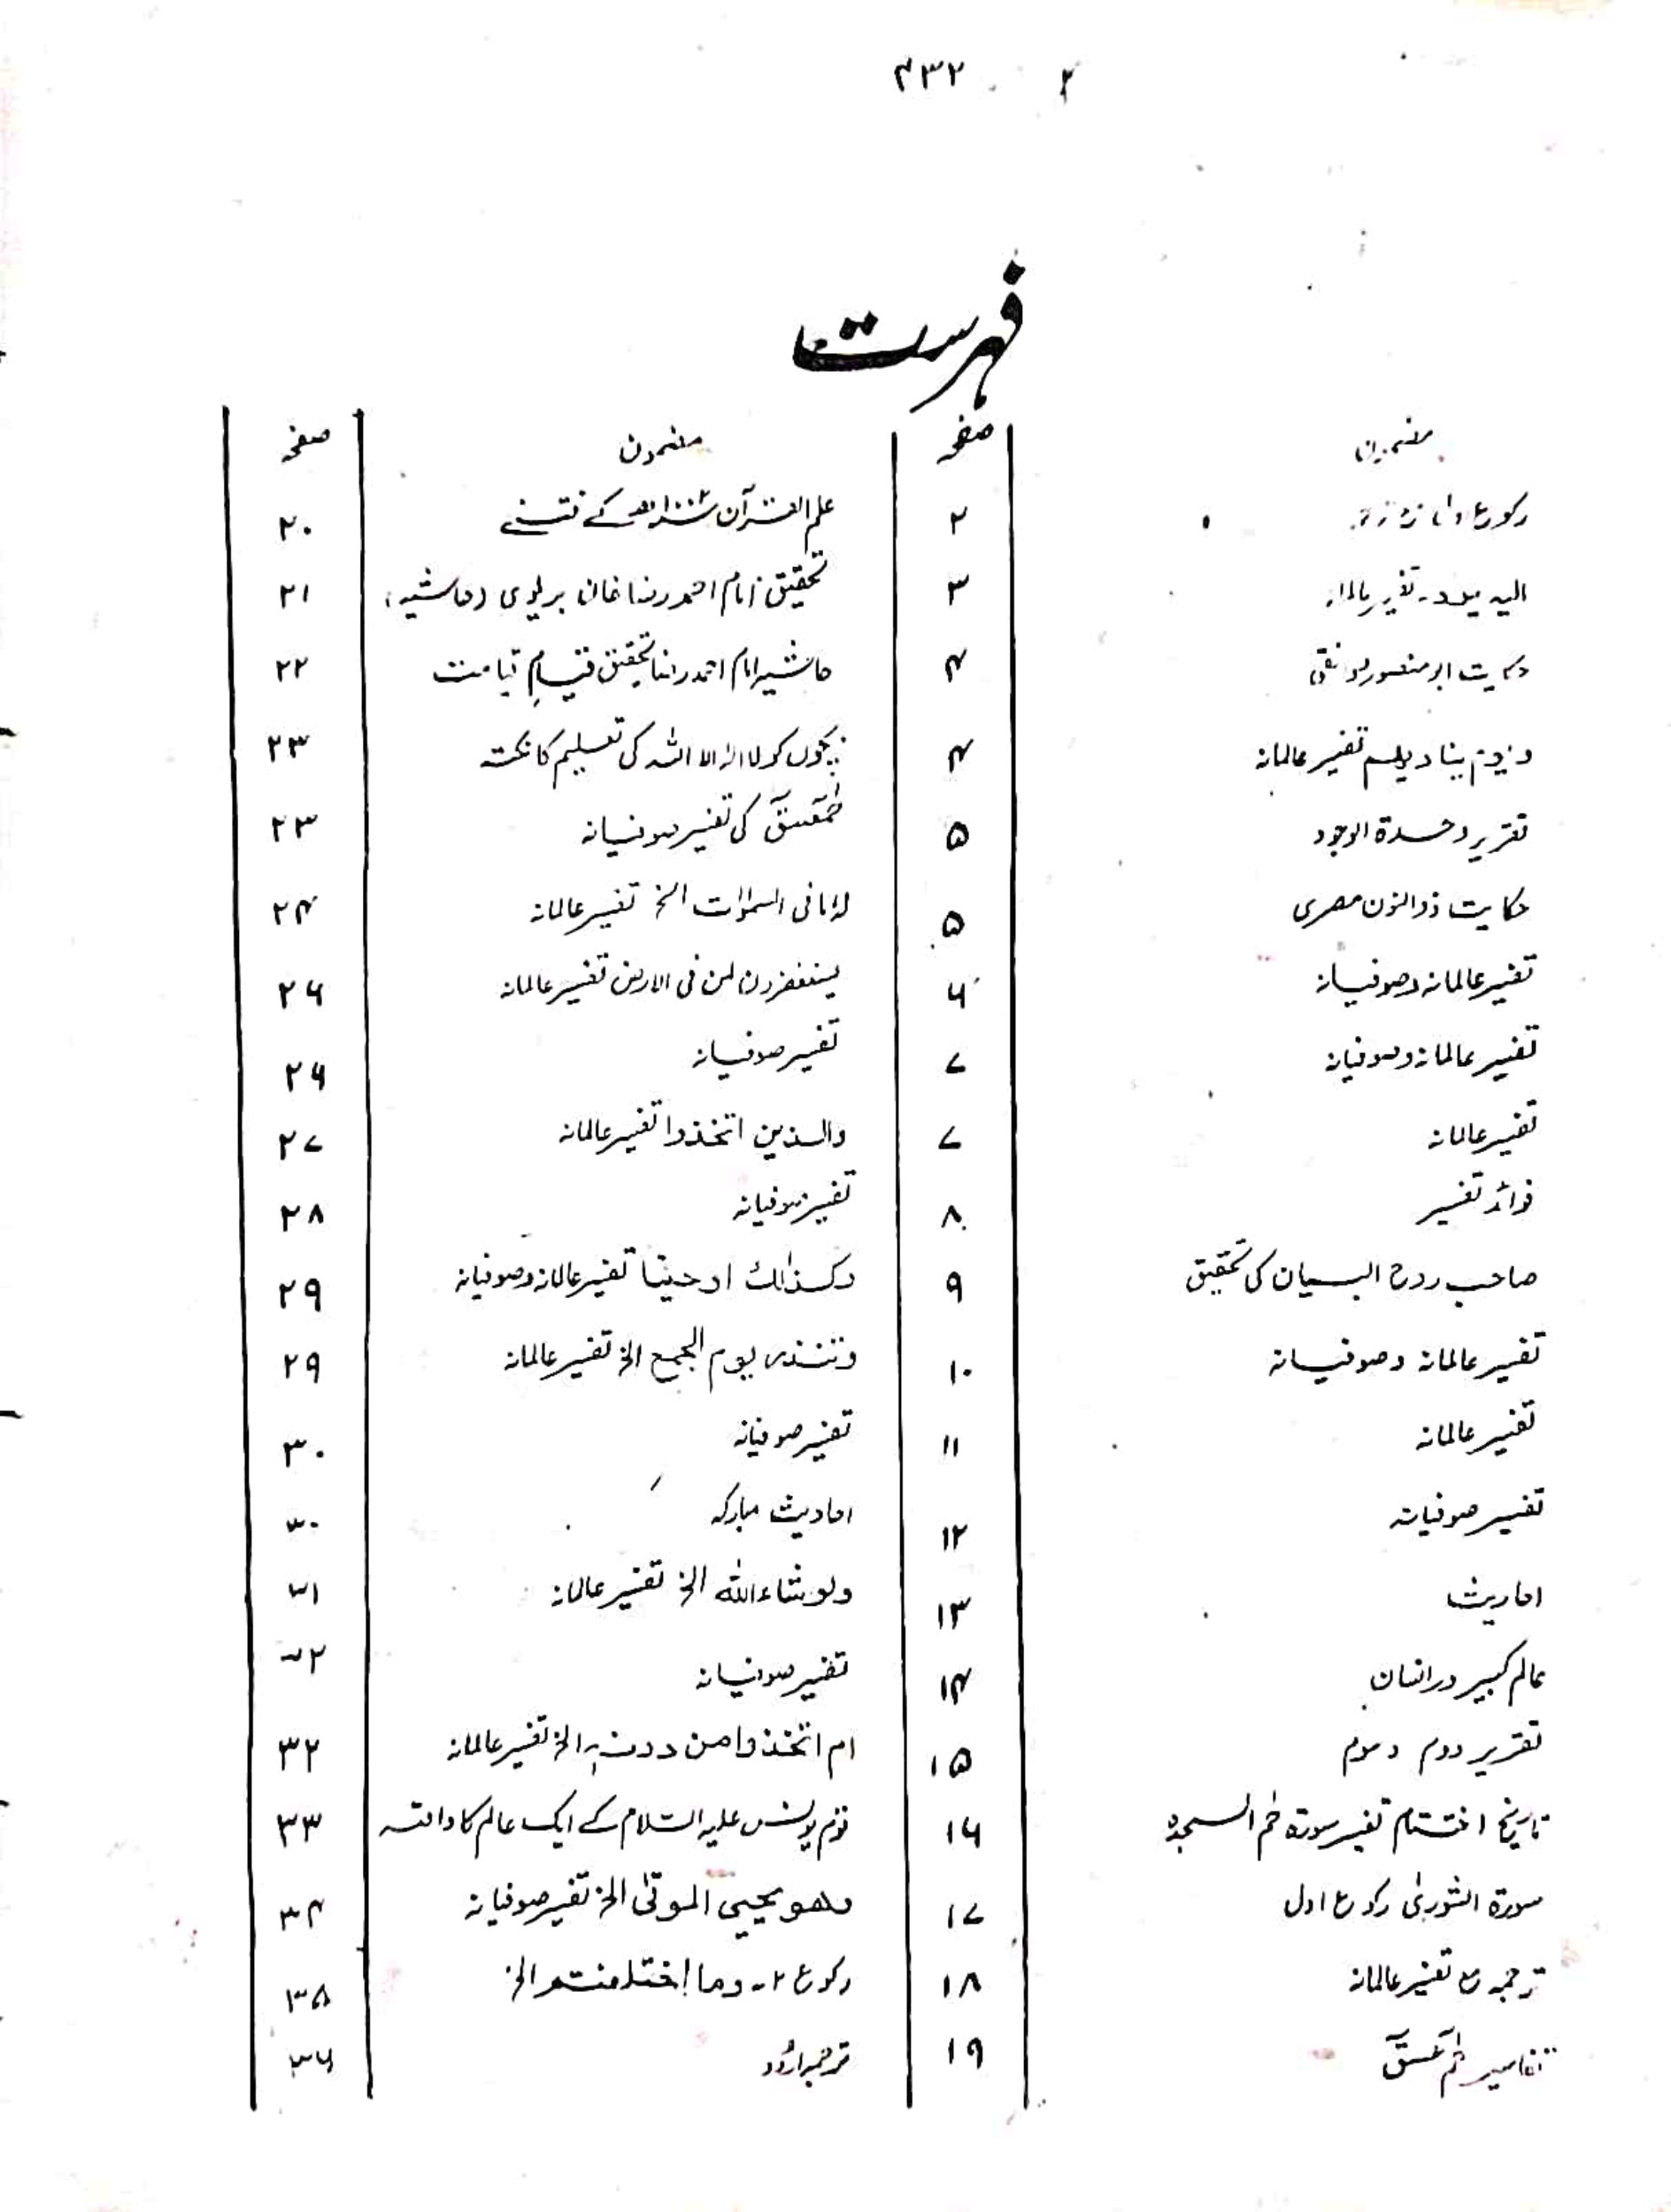 ۴۳۲ ۲
فہرست
مضمون صفحہ مضمون صفحہ
رکوع ۲ علم القرآن کے فتنے ۲۰
الیہ یرد۔ تفسیر عالمانہ ۳ تحقیق امام احمد رضا خان بریلوی (حاشیہ) ۲۱
حکایت ابو منصور ۴ حاشیہ امام احمد رضا تحقیق قیامِ قیامت ۲۲
ویوم ینادیہم تفسیر عالمانہ ۴ بچوں کو لا الہ الا اللہ کی تعلیم کا نکتہ ۲۳
تقریر وحدۃ الوجود ۵ حٰمٓعسق کی تفسیر صوفیانہ ۲۳
حکایت ذوالنون مصری ۵ لہ ما فی السمٰوٰت الخ تفسیر عالمانہ ۲۴
تفسیر عالمانہ وصوفیانہ ۶ یستغفرون لمن فی الارض تفسیر عالمانہ ۲۶
تفسیر عالمانہ وصوفیانہ ۷ تفسیر صوفیانہ ۲۶
تفسیر عالمانہ ۷ والذین اتخذوا تفسیر عالمانہ ۲۷
فوائد تفسیر ۸ تفسیر صوفیانہ ۲۸
صاحب روح البیان کی تحقیق ۹ وکذٰلک اوحینا تفسیر عالمانہ وصوفیانہ ۲۹
تفسیر عالمانہ وصوفیانہ ۱۰ وتنذر یوم الجمع الخ تفسیر عالمانہ ۲۹
تفسیر عالمانہ ۱۱ تفسیر صوفیانہ ۳۰
تفسیر صوفیانہ ۱۲ احادیث مبارکہ ۳۰
احادیث ۱۳ ولو شاء اللہ الخ تفسیر عالمانہ ۳۱
عالم کبیر در انسان ۱۴ تفسیر صوفیانہ ۳۲
تقریر دوم وسوم ۱۵ ام اتخذوا من دونہٖ الخ تفسیر عالمانہ ۳۲
تاریخ اختتام تفسیر سورۃ حٰم السجدہ ۱۶ قوم یونس علیہ السلام کے ایک عالم کا واقعہ ۳۳
سورۃ الشوریٰ رکوع اول ۱۷ وھو یحیی الموتٰی الخ تفسیر صوفیانہ ۳۴
ترجمہ مع تفسیر عالمانہ ۱۸ رکوع ۲۔ وما اختلفتم الخ ۳۵
تفاسیر حٰم عٓسقٓ ۱۹ ترجمہ اردو ۳۶